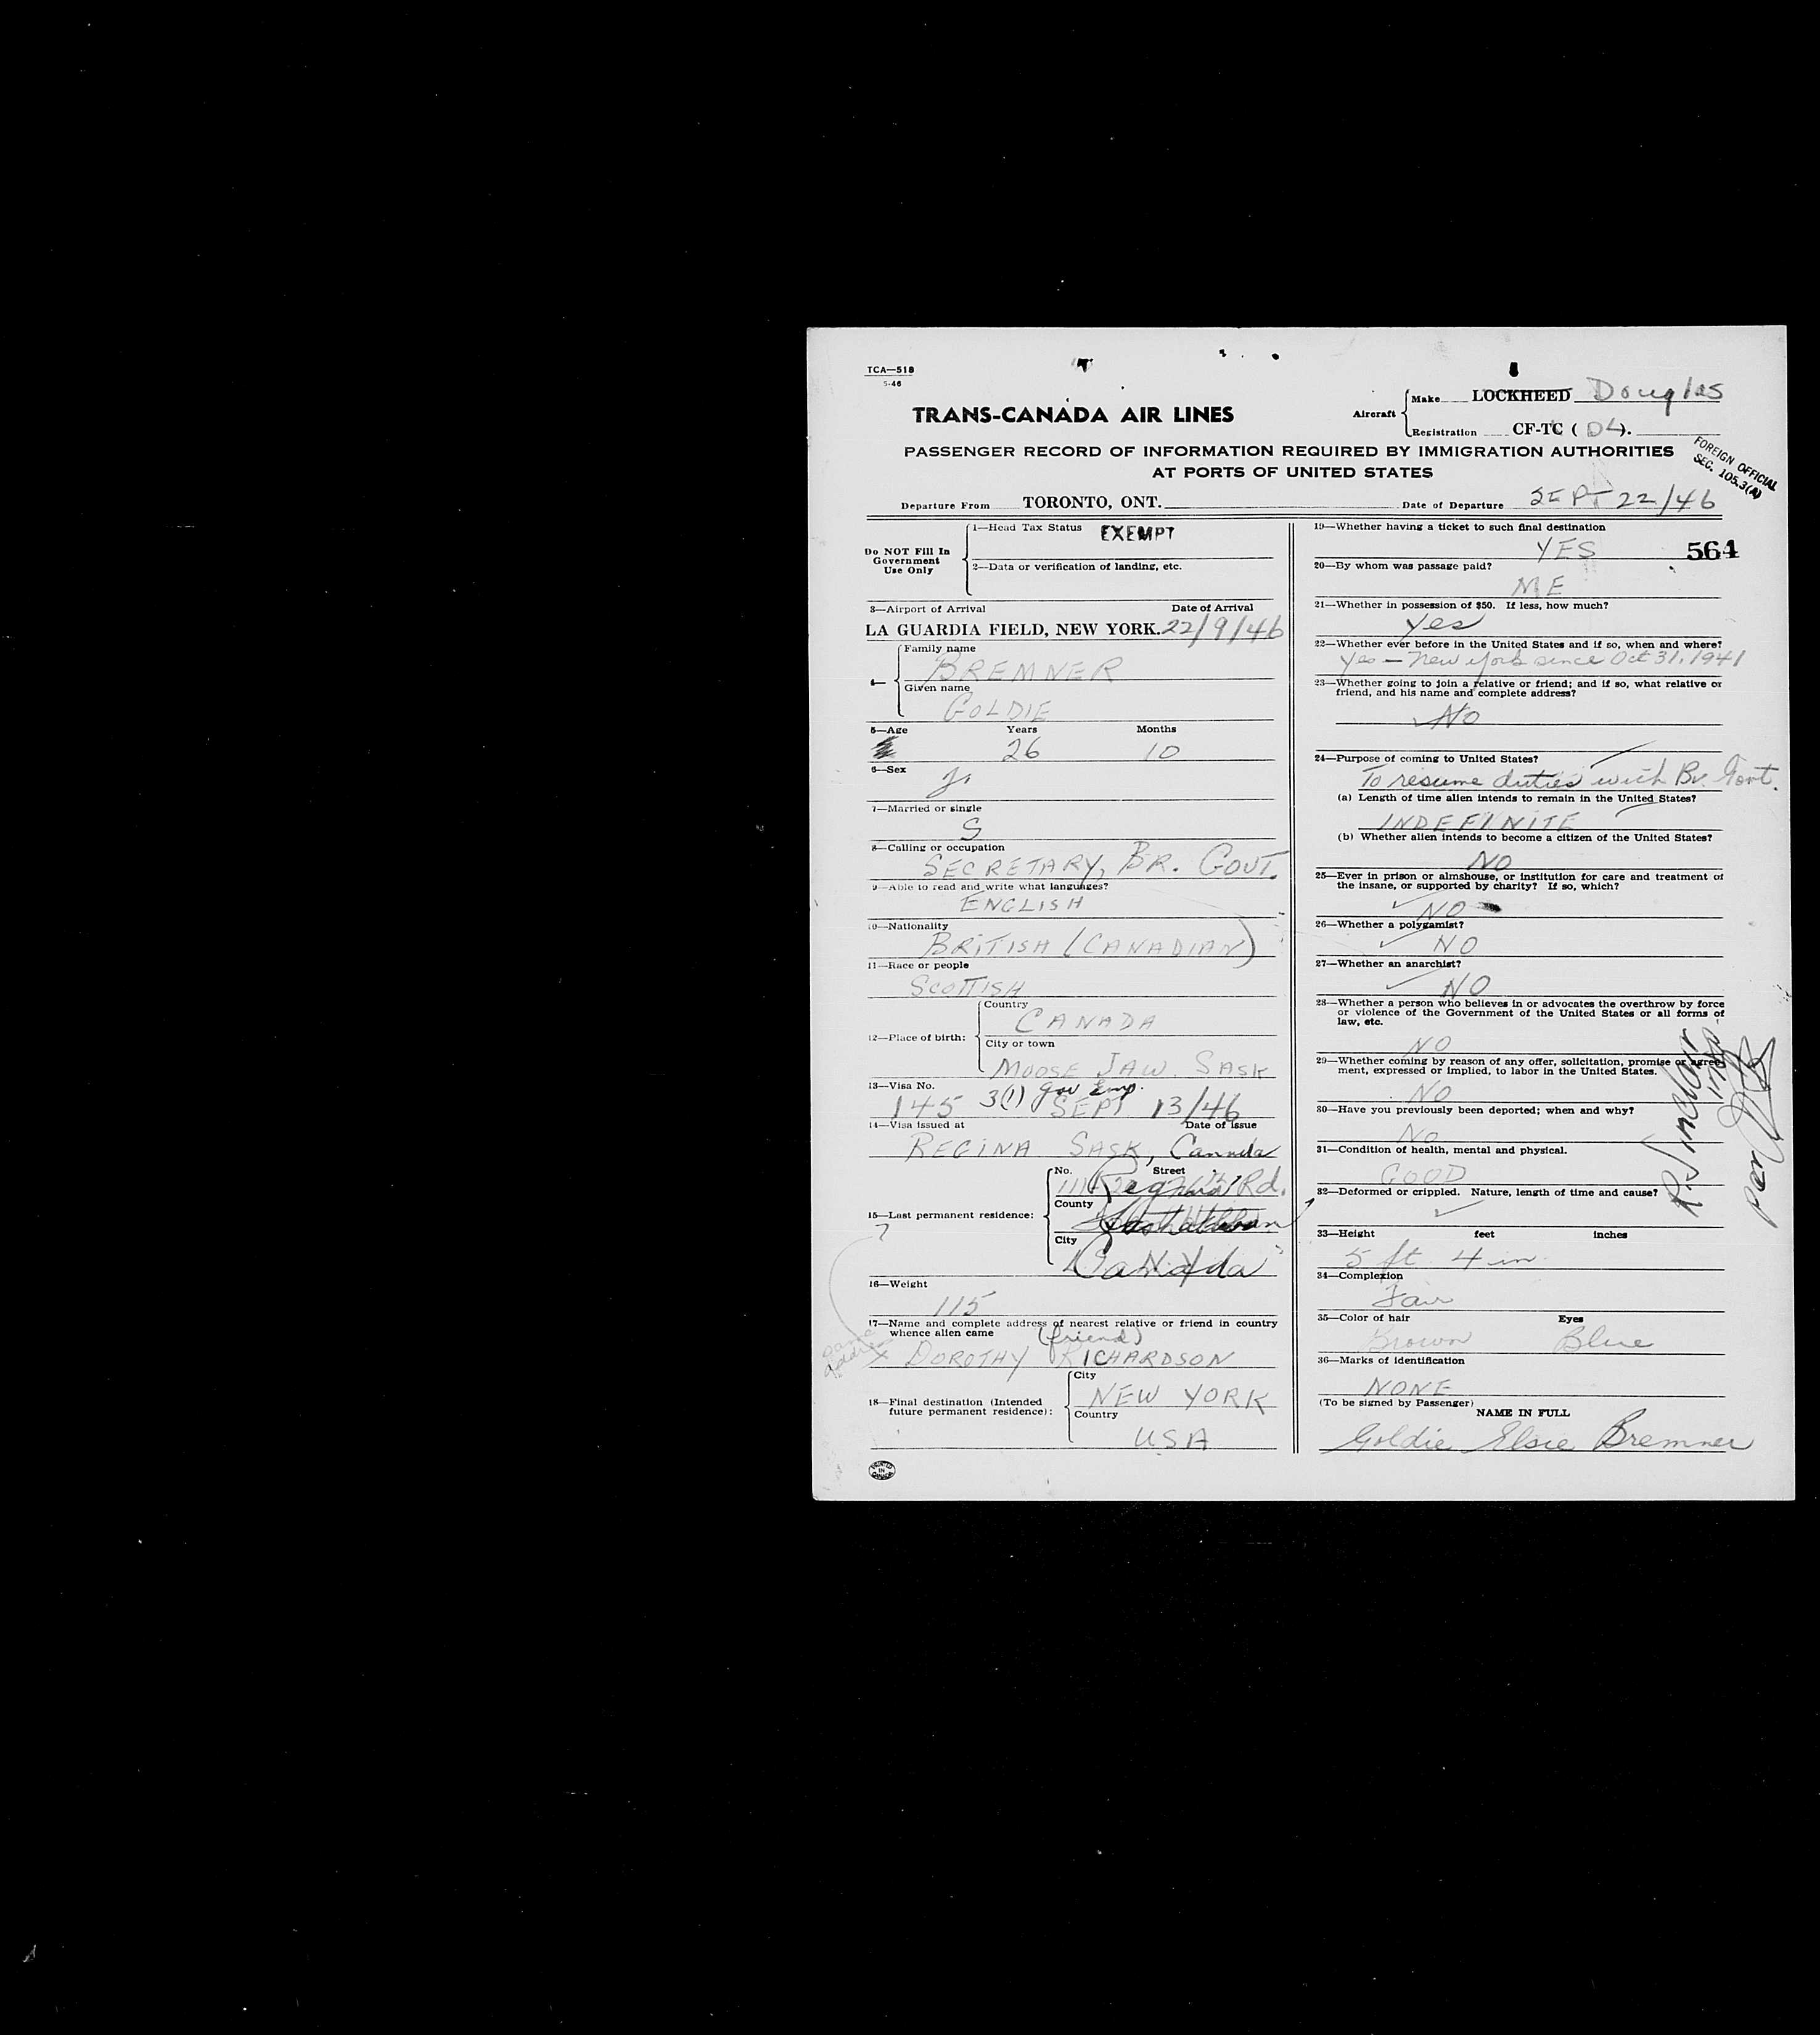 TCA—518
5-46
TRANS-CANADA AIR LINES
Aircraft
Make LOCKHEED Douglas
Registration CF-TC ( DL ).
PASSENGER RECORD OF INFORMATION REQUIRED BY IMMIGRATION AUTHORITIES
AT PORTS OF UNITED STATES
FOREIGN OFFICIAL
SEC. 105.3(A)
Departure From TORONTO, ONT. Date of Departure SEPT 22/46
Do NOT Fill In
Government
Use Only
1—Head Tax Status EXEMPT
2—Data or verification of landing, etc.
3—Airport of Arrival Date of Arrival
LA GUARDIA FIELD, NEW YORK. 22/9/46
4—
Family name
BREMNER
Given name
GOLDIE
5—Age Years Months
26 10
6—Sex
f.
7—Married or single
S
8—Calling or occupation
SECRETARY, BR. GOVT.
9—Able to read and write what languages?
ENGLISH
10—Nationality
BRITISH (CANADIAN)
11—Race or people
SCOTTISH
12—Place of birth:
Country
CANADA
City or town
MOOSE JAW. SASK
13—Visa No. 3(1) gov Emp.
145 SEPT 13/46
14—Visa issued at Date of issue
REGINA SASK, Canada
15—Last permanent residence:
No. Street
Rd.
County
City
Canada
16—Weight
115
17—Name and complete address of nearest relative or friend in country
whence alien came (friend)
DOROTHY RICHARDSON
same
address
18—Final destination (Intended
future permanent residence):
City
NEW YORK
Country
USA
PRINTED
IN
CANADA
19—Whether having a ticket to such final destination
YES 564
20—By whom was passage paid?
ME
21—Whether in possession of $50. If less, how much?
Yes
22—Whether ever before in the United States and if so, when and where?
Yes — New York since Oct 31, 1941
23—Whether going to join a relative or friend; and if so, what relative or
friend, and his name and complete address?
No
24—Purpose of coming to United States?
To resume duties with Br. Govt.
(a) Length of time alien intends to remain in the United States?
INDEFINITE
(b) Whether alien intends to become a citizen of the United States?
NO
25—Ever in prison or almshouse, or institution for care and treatment of
the insane, or supported by charity? If so, which?
NO
26—Whether a polygamist?
NO
27—Whether an anarchist?
NO
28—Whether a person who believes in or advocates the overthrow by force
or violence of the Government of the United States or all forms of
law, etc.
NO
29—Whether coming by reason of any offer, solicitation, promise or agree-
ment, expressed or implied, to labor in the United States.
NO
30—Have you previously been deported; when and why?
No
31—Condition of health, mental and physical.
GOOD
32—Deformed or crippled. Nature, length of time and cause?
33—Height feet inches
5 ft 4 in
34—Complexion
Fair
35—Color of hair Eyes
Brown Blue
36—Marks of identification
NONE
(To be signed by Passenger)
NAME IN FULL
Goldie Elsie Bremner
R. Sinclair
per